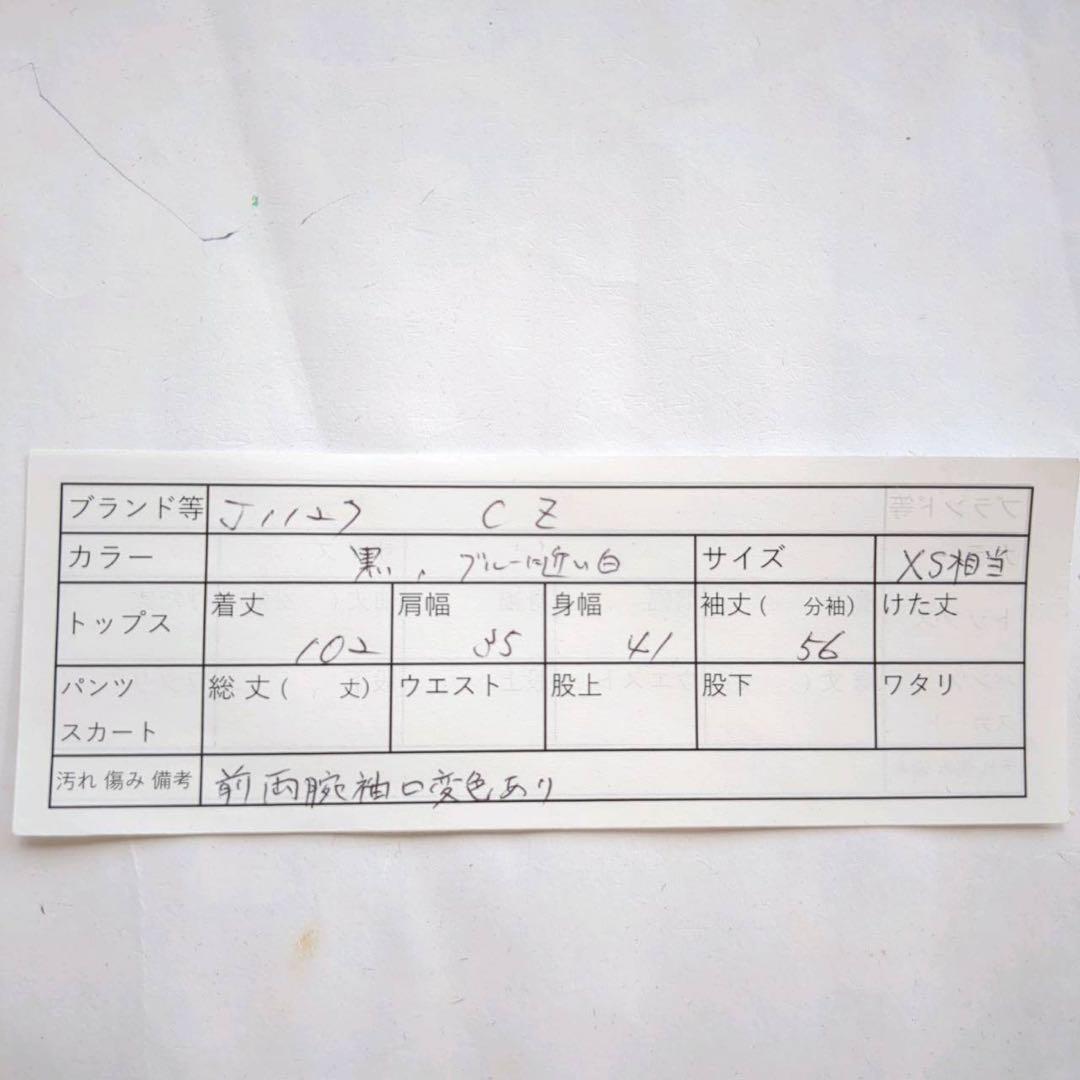 ブランド等 J1127 CZ
カラー 黒、ブルーに近い白 サイズ XS相当
トップス 着丈 102 肩幅 35 身幅 41 袖丈( 分袖) 56 けた丈
パンツ スカート 総丈( 丈) ウエスト 股上 股下 ワタリ
汚れ 傷み 備考 前両腕袖口変色あり